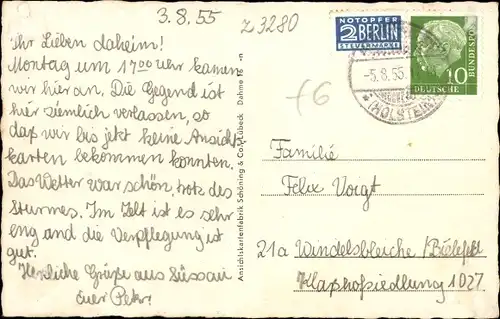 3.8.55
Z 3280
Ihr Lieben daheim!
Montag um 17⁰⁰ Uhr kamen
wir hier an. Die Gegend ist
hier ziemlich verlassen, so
daß wir bis jetzt keine Ansichts-
karten bekommen konnten.
Das Wetter war schön, trotz des
Sturmes. Im Zelt ist es sehr
eng und die Verpflegung ist
gut.
Herzliche Grüße aus Süssau
Euer Peter!
Ansichtskartenfabrik Schöning & Co., Lübeck Dahme 16 -n
NOTOPFER
2 BERLIN
STEUERMARKE
DEUTSCHE
BUNDESPOST
10
-5.8.55.
(HOLSTEIN)
f6
Familie
Felix Voigt
21a Windelsbleiche/Bielefeld
Klashofsiedlung 1027